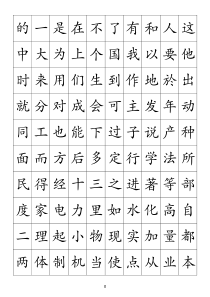 的一是在不了有和人这
中大为上个国我以要他
时来用们生到作地於出
就分对成会可主发年动
同工也能下过子说产种
面而方后多定行学法所
民得经十三之进著等部
度家电力里如水化高自
二理起小物现实加量都
两体制机当使点从业本